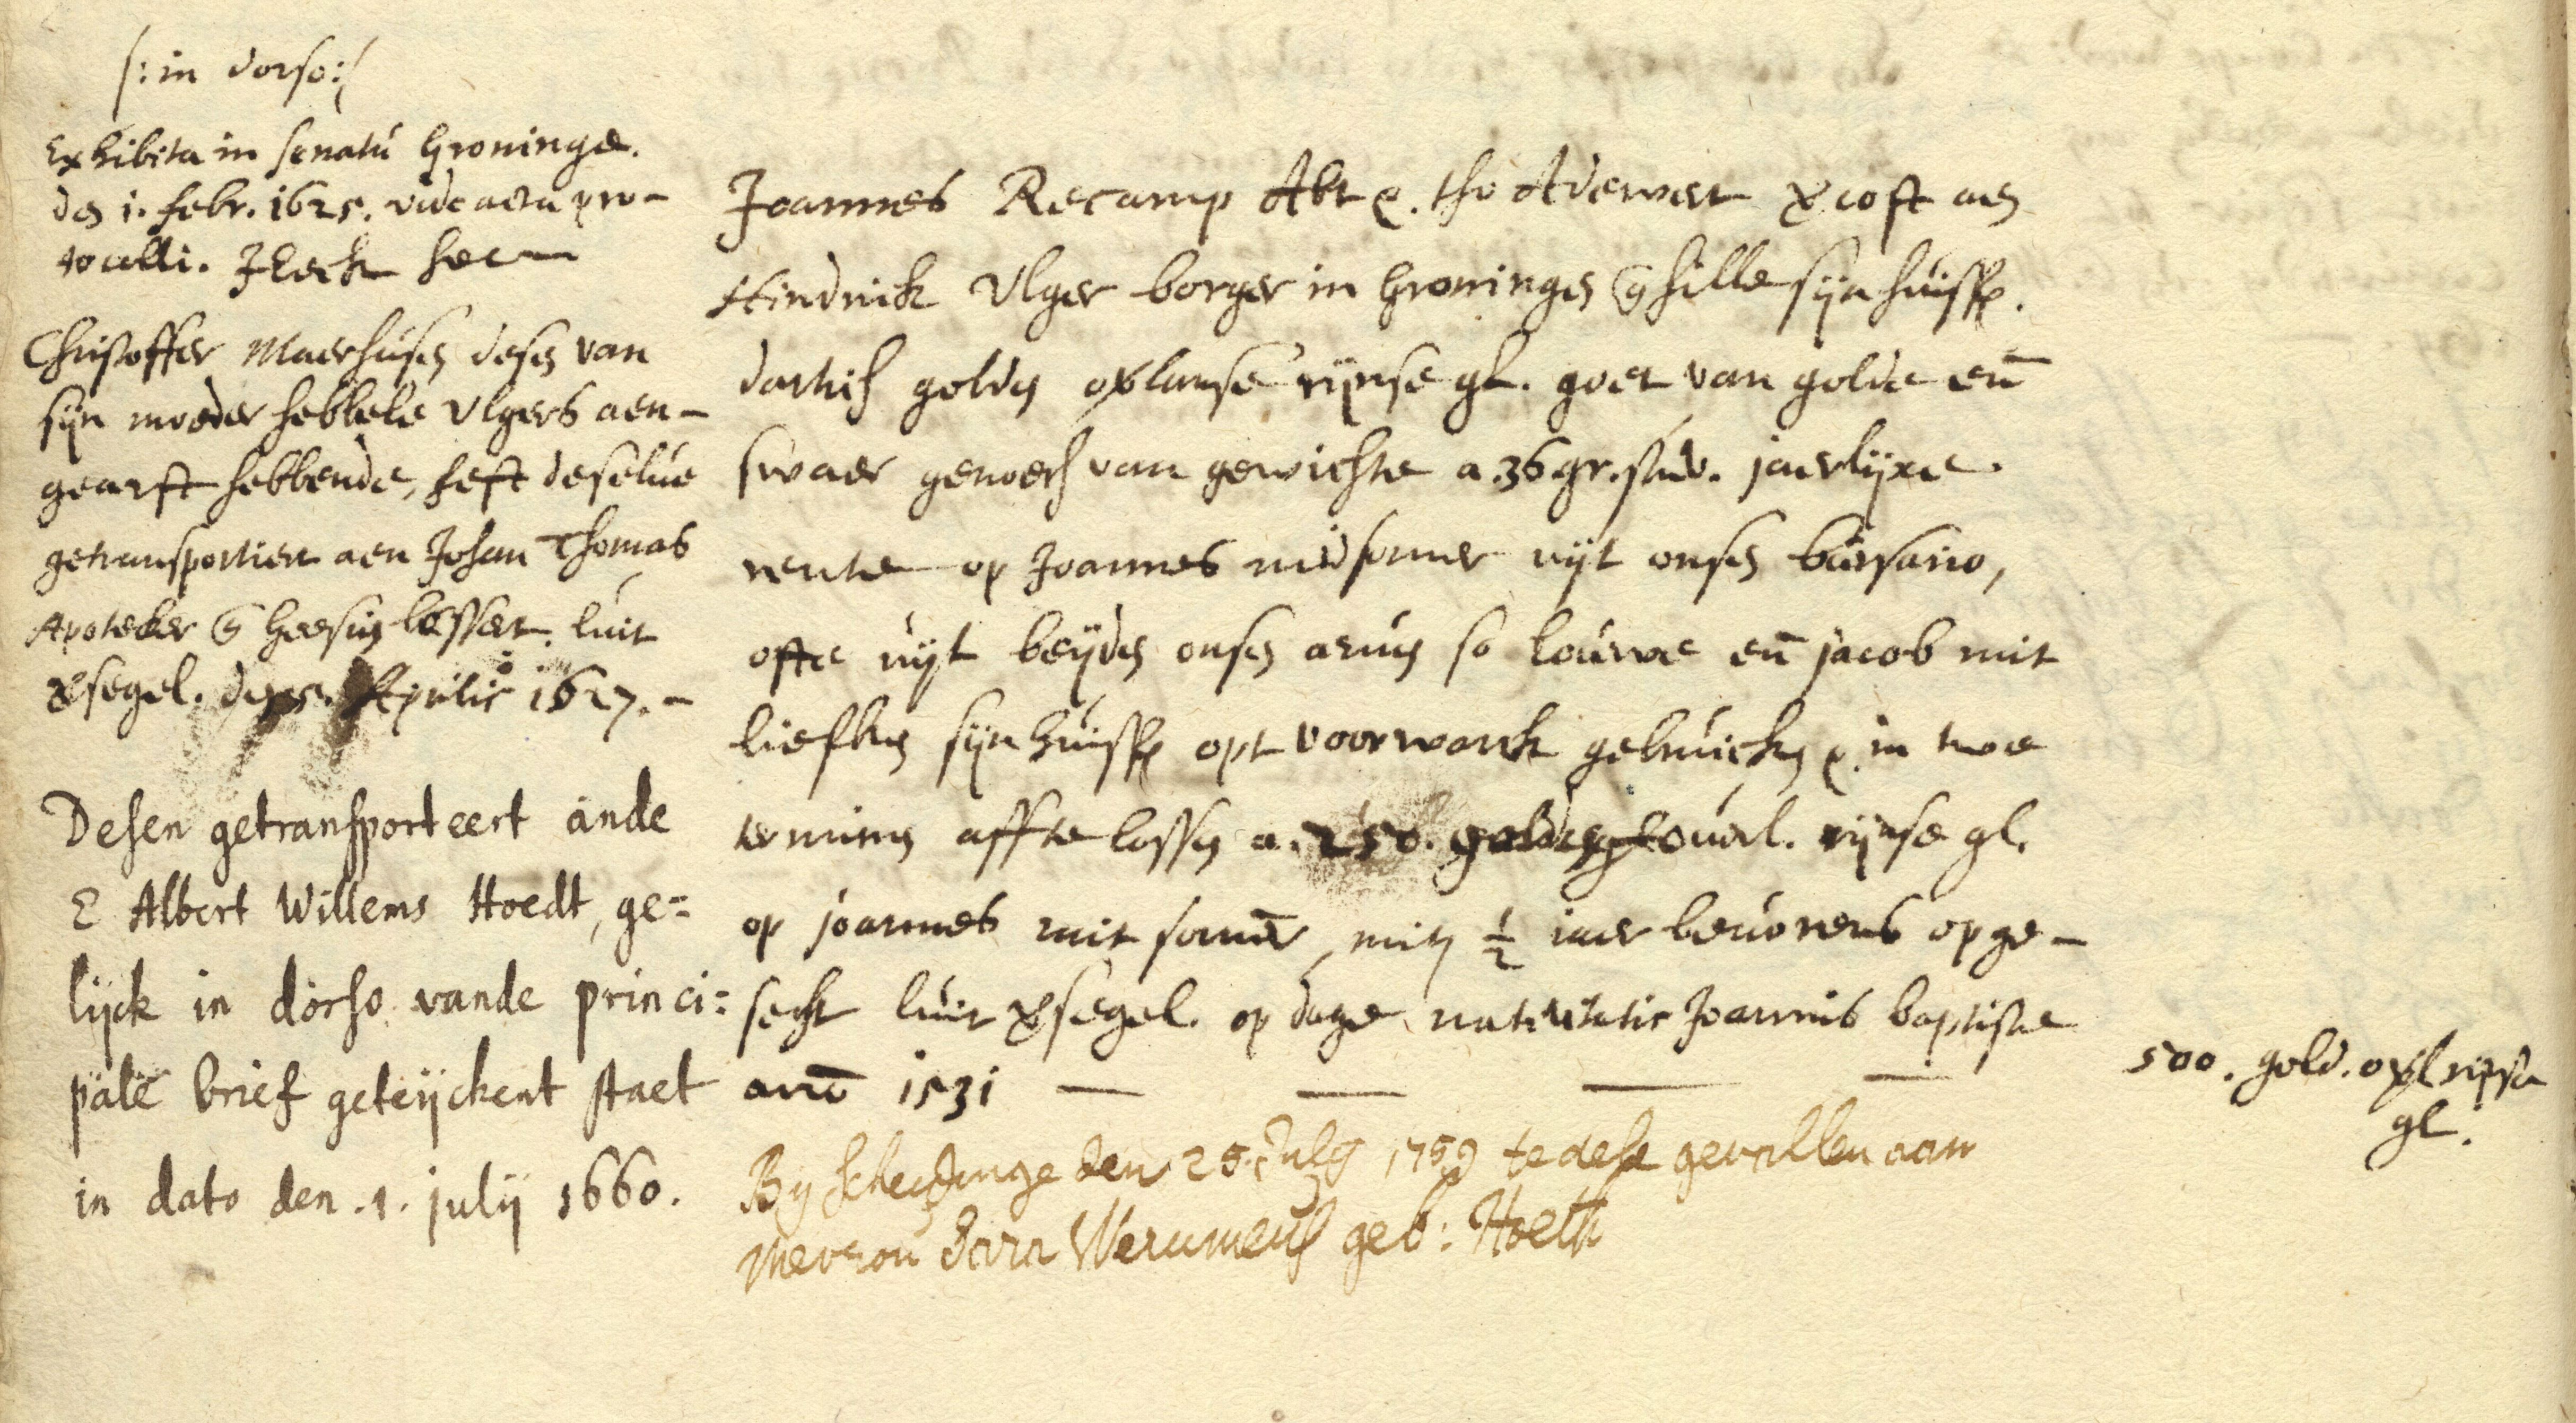 /: in dorso :/
Exhibita in senatu Groningæ.
den 1. febr. 1625. vide acta pro-
tocolli.
Christoffer Maerhuisen desen van
sijn moeder hebbele Ulgers aen-
gearft hebbende, heft deselue
getransportiert aen Johan Thomas
Apoteker luit
segel. Aprilis 1627. -
Desen getransporteert ande
E Albert Willems Hoedt, ge=
lijck in dorso vande princi=
pale brief geteijckent staet
in dato den .1. julij 1660.
Joannes Recamp Abt tho Adewert vercoft aen
Hindrick Ulger borger in Groningen en hille sijn huisfr.
dartich golden overlanse rijnse gl. goet van golde eñ
swaer genoech van gewichte a. 36 gr. stuv. jaerlijxe
rente op Joannes midsomer uijt onsen bursario,
ofte uijt beijden onsen aruen so louwe eñ jacob mit
liefken sijn huisfr opt voorwerck gebruicken in twe
terminen affte lossen a. 250. overl. rijnse gl.
op joannes mit somer, mits ½ iaer beuorens opge-
secht luit versegel. op dage nativitatis Joannis baptistæ
anō 1531 — — — —
By scheidinge den 25 July 1759 te dese gevallen aan
Mevrou Werumeus geb: Hoeth
500. gold. overl rijnse
gl.